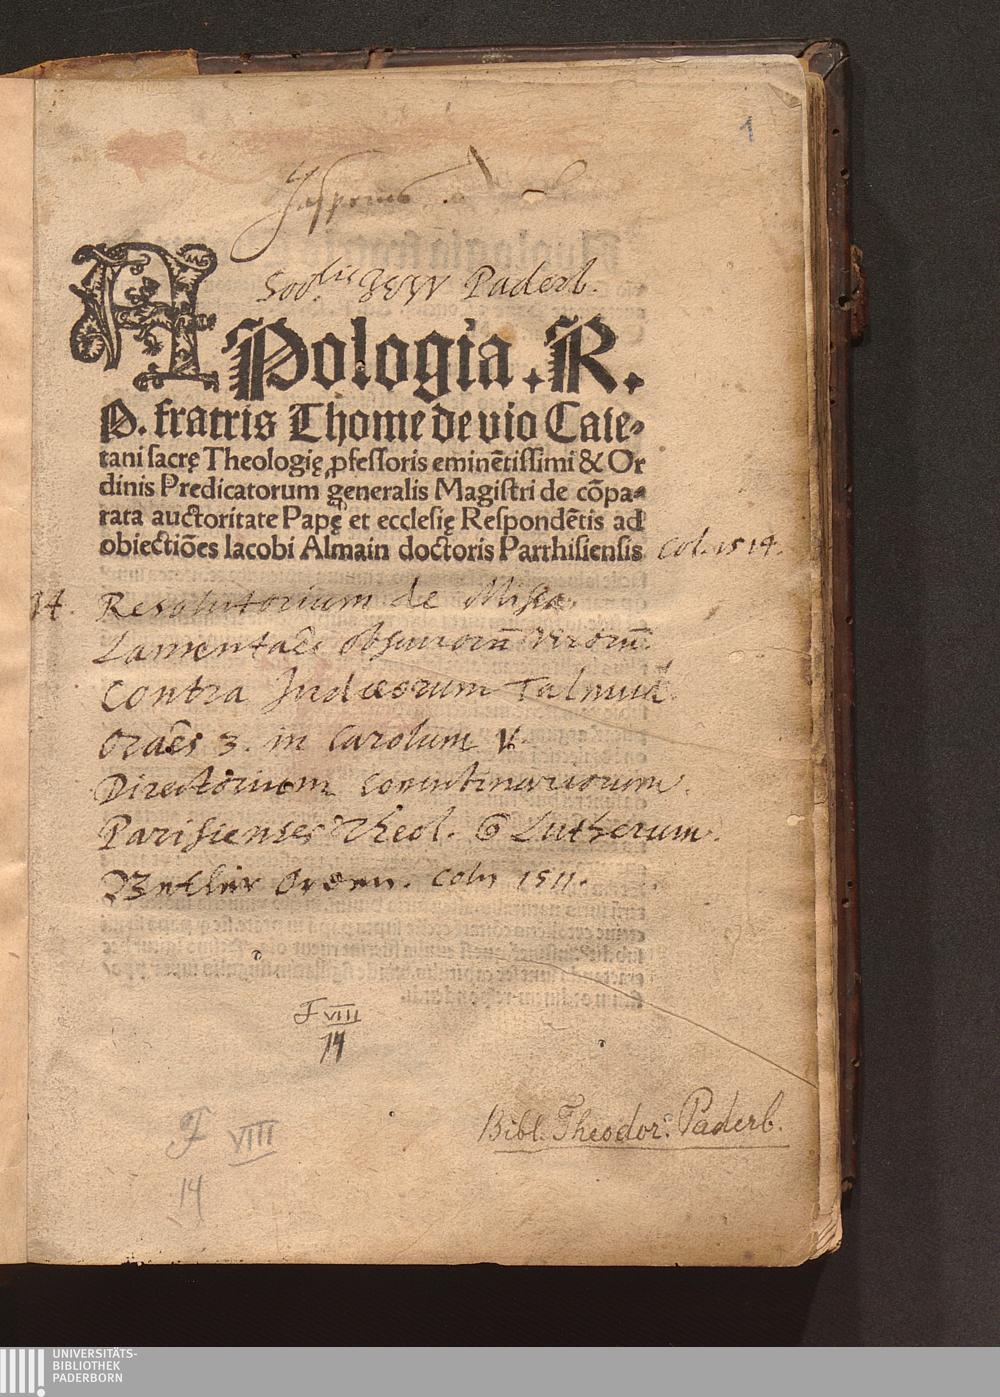 1
Soc.tis Jesu Paderb.
APologia. R.
P. fratris Thome de vio Caie-
tani sacrę Theologię ꝓfessoris eminẽtissimi & Or
dinis Predicatorum generalis Magistri de cõpa-
rata auctoritate Papę et ecclesię Respondẽtis ad
obiectiões Iacobi Almain doctoris Parrhisiensis Col. 1514.
14. Resolutorium de Missa.
Lamentaẽs obscurorũ virorũ.
Contra Judæorum Talmud.
Oraẽs 3. in Carolum V.
Directorium concubinariorum.
Parisienses Theol. Lutherum.
Orden. Coln 1511.
F VIII
14
F VIII
14
Bibl. Theodor. Paderb.
UNIVERSITÄTS-
BIBLIOTHEK
PADERBORN